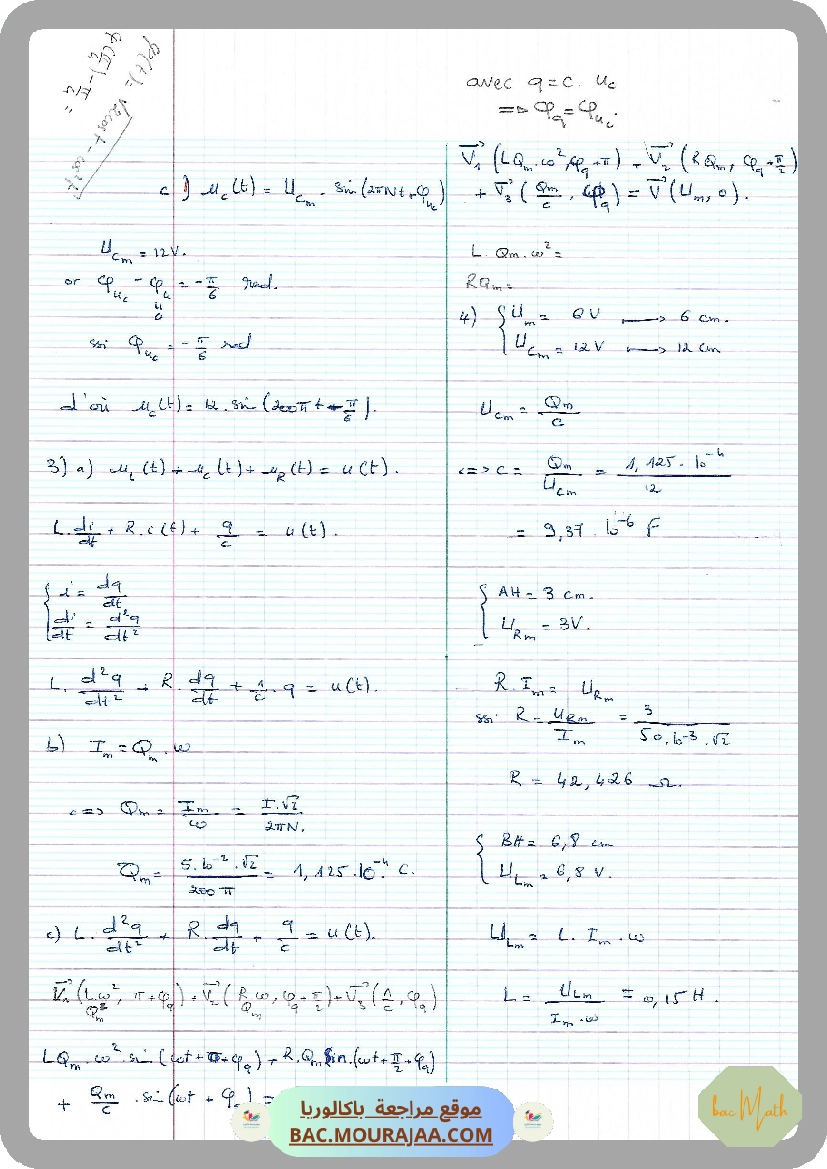 c) u_c(t) = U_cm . sin(2πNt + φ_uc)
U_cm = 12V.
or φ_uc - φ_u = -π/6 rad.
u
0
ssi φ_uc = -π/6 rad
d'où u_c(t) = 12 . sin(200πt - π/6).
3) a) u_L(t) + u_c(t) + u_R(t) = u(t).
L. di/dt + R.i(t) + q/c = u(t).
{ i = dq/dt
di/dt = d²q/dt²
L. d²q/dt² + R. dq/dt + 1/c . q = u(t).
b) I_m = Q_m . ω
<=> Q_m = I_m/ω = I.√2/2πN.
Q_m = 5.10⁻² . √2/200π = 1,125.10⁻⁴ C.
c) L. d²q/dt² + R. dq/dt + q/c = u(t).
V₁ (L.ω² Q_m, π+φ_q) + V₂ (R ω Q_m, φ_q + π/2) + V₃ (1/c, φ_q)
LQ_m . ω² sin(ωt + π + φ_q) + R.Q_m sin.(ωt + π/2 + φ_q)
+ Q_m/c . sin(ωt + φ_q) =
avec q = c. u_c
=> φ_q = φ_uc
V₁ (LQ_m.ω², φ_q + π) + V₂ (RQ_m, φ_q + π/2)
+ V₃ (Q_m/c, φ_q) = V (U_m, 0).
L. Q_m. ω² =
RQ_m =
4) { U_m = 6V → 6 cm.
U_cm = 12V → 12 cm
U_cm = Q_m/c
<=> c = Q_m/U_cm = 1,125 . 10⁻⁴/12
= 9,37 . 10⁻⁶ F
{ AH = 3 cm.
U_Rm = 3V.
R. I_m = U_Rm
ssi R = U_Rm/I_m = 3/50.10⁻³.√2
R = 42,426 Ω.
{ BH = 6,8 cm
U_Lm = 6,8 V.
U_Lm = L. I_m . ω
L = U_Lm/I_m.ω = 0,15 H.
موقع مراجعة باكالوريا
BAC.MOURAJAA.COM
bac Math